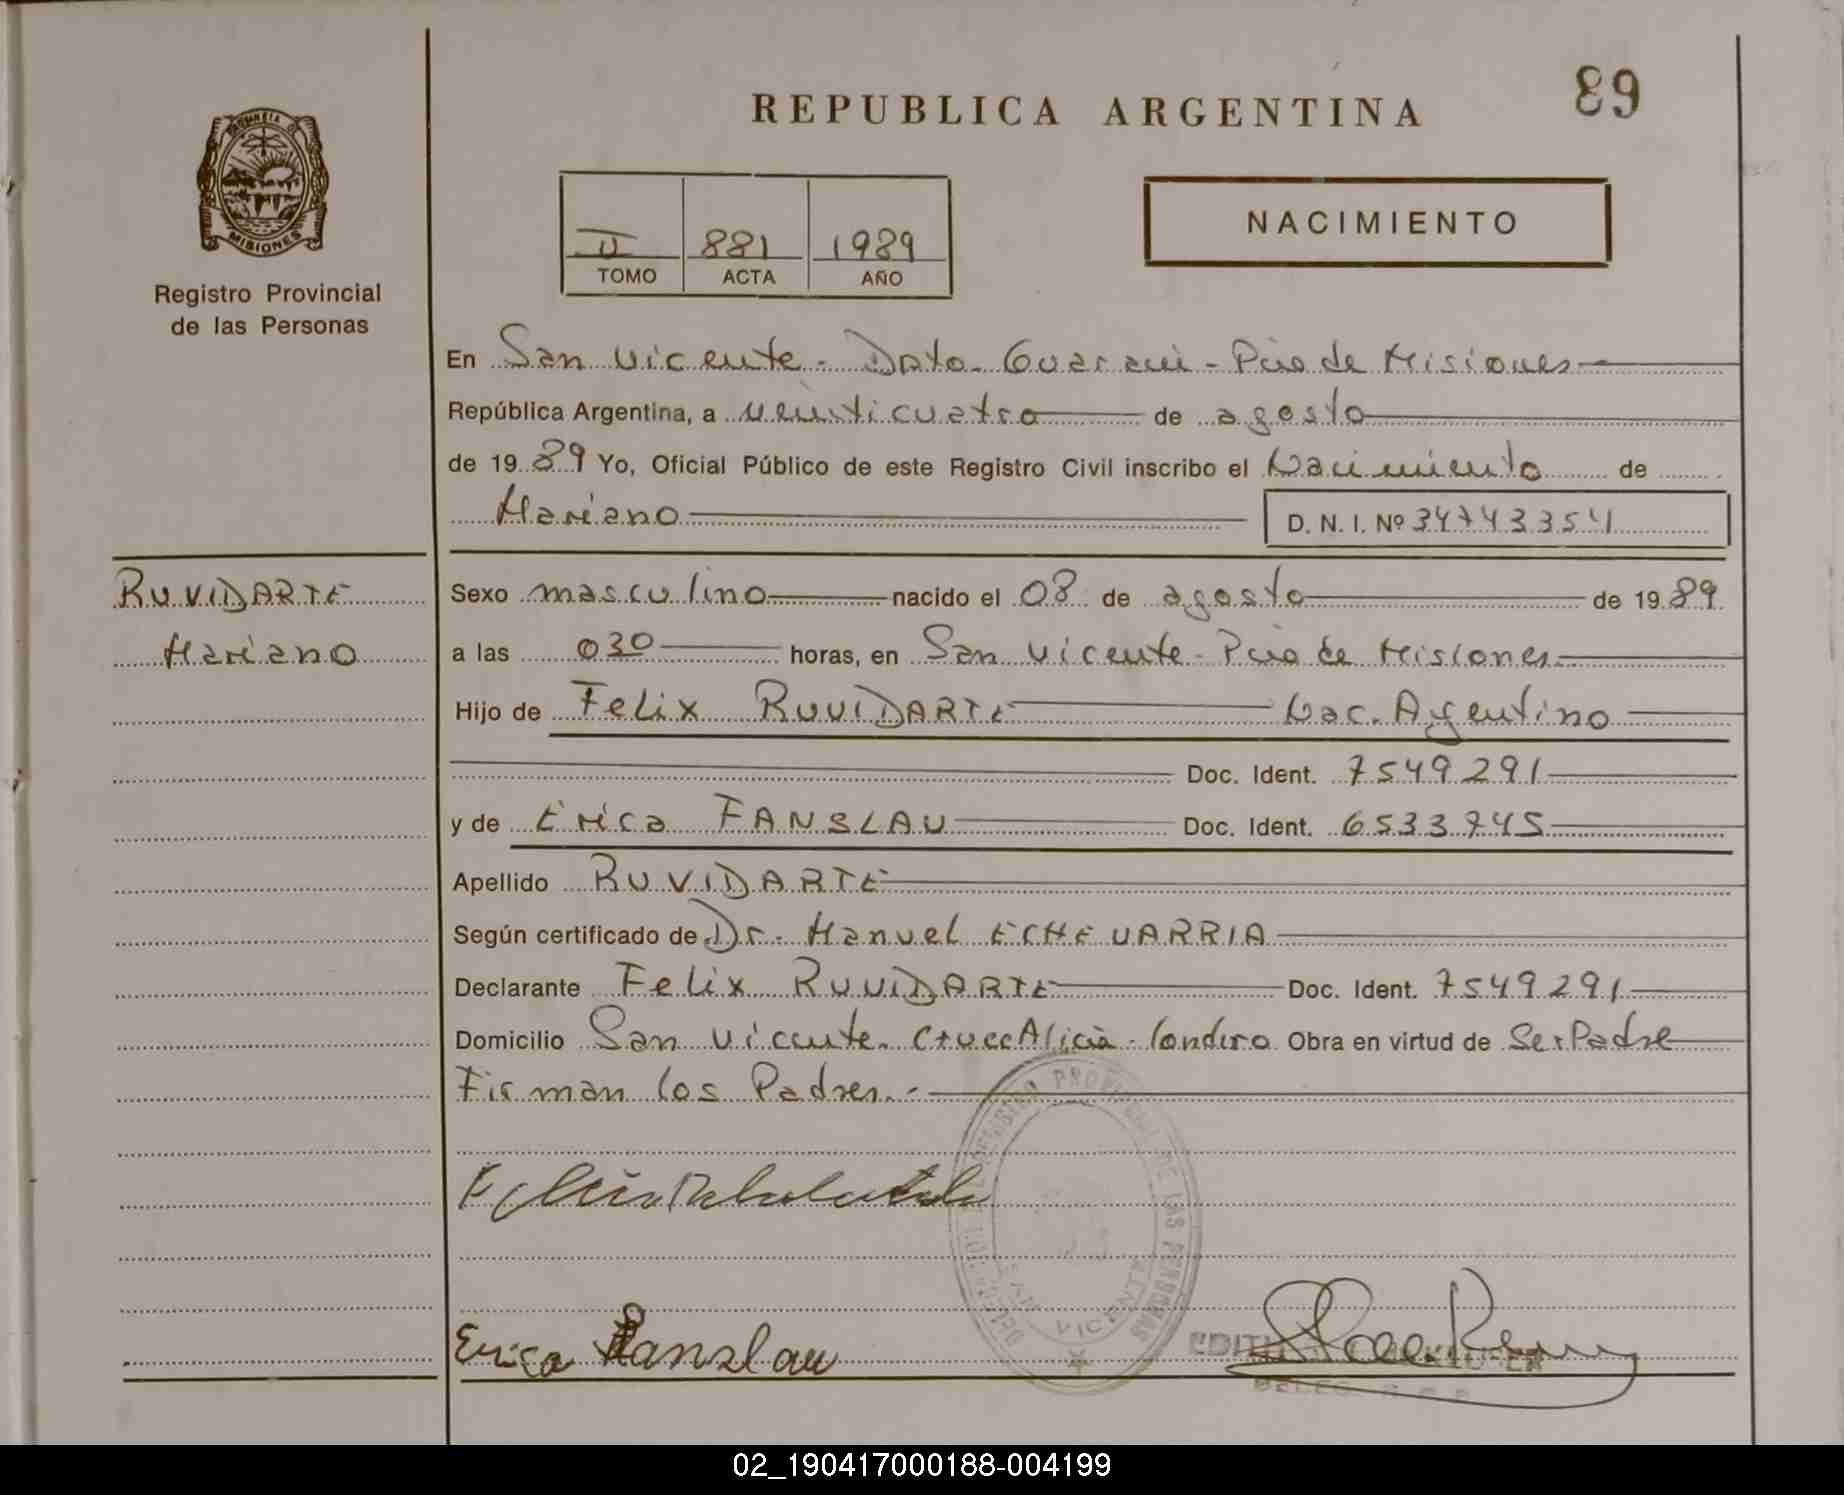 REPUBLICA ARGENTINA
89
PROVINCIA D MISIONES
Registro Provincial
de las Personas
II 881 1989
TOMO ACTA AÑO
NACIMIENTO
En San Vicente - Dpto. Guarani - Pcia de Misiones
República Argentina, a veinticuatro de agosto
de 1989 Yo, Oficial Público de este Registro Civil inscribo el Nacimiento de
Mariano D. N. I. Nº 34743354
RUVIDARTE
Mariano
Sexo masculino nacido el 08 de agosto de 1989
a las 030 horas, en San Vicente - Pcia de Misiones
Hijo de Felix RUVIDARTE Nac. Argentino
Doc. Ident. 7549291
y de Erica FANSLAU Doc. Ident. 6533745
Apellido RUVIDARTE
Según certificado de Dr. Manuel ECHEVARRIA
Declarante Felix RUVIDARTE Doc. Ident. 7549291
Domicilio San Vicente. Cruce Alicia - Londero Obra en virtud de Ser Padre
Firman los Padres.-
REGISTRO PROVINCIAL DE LAS PERSONAS
SAN VICENTE
Erica Fanslau
02_190417000188-004199